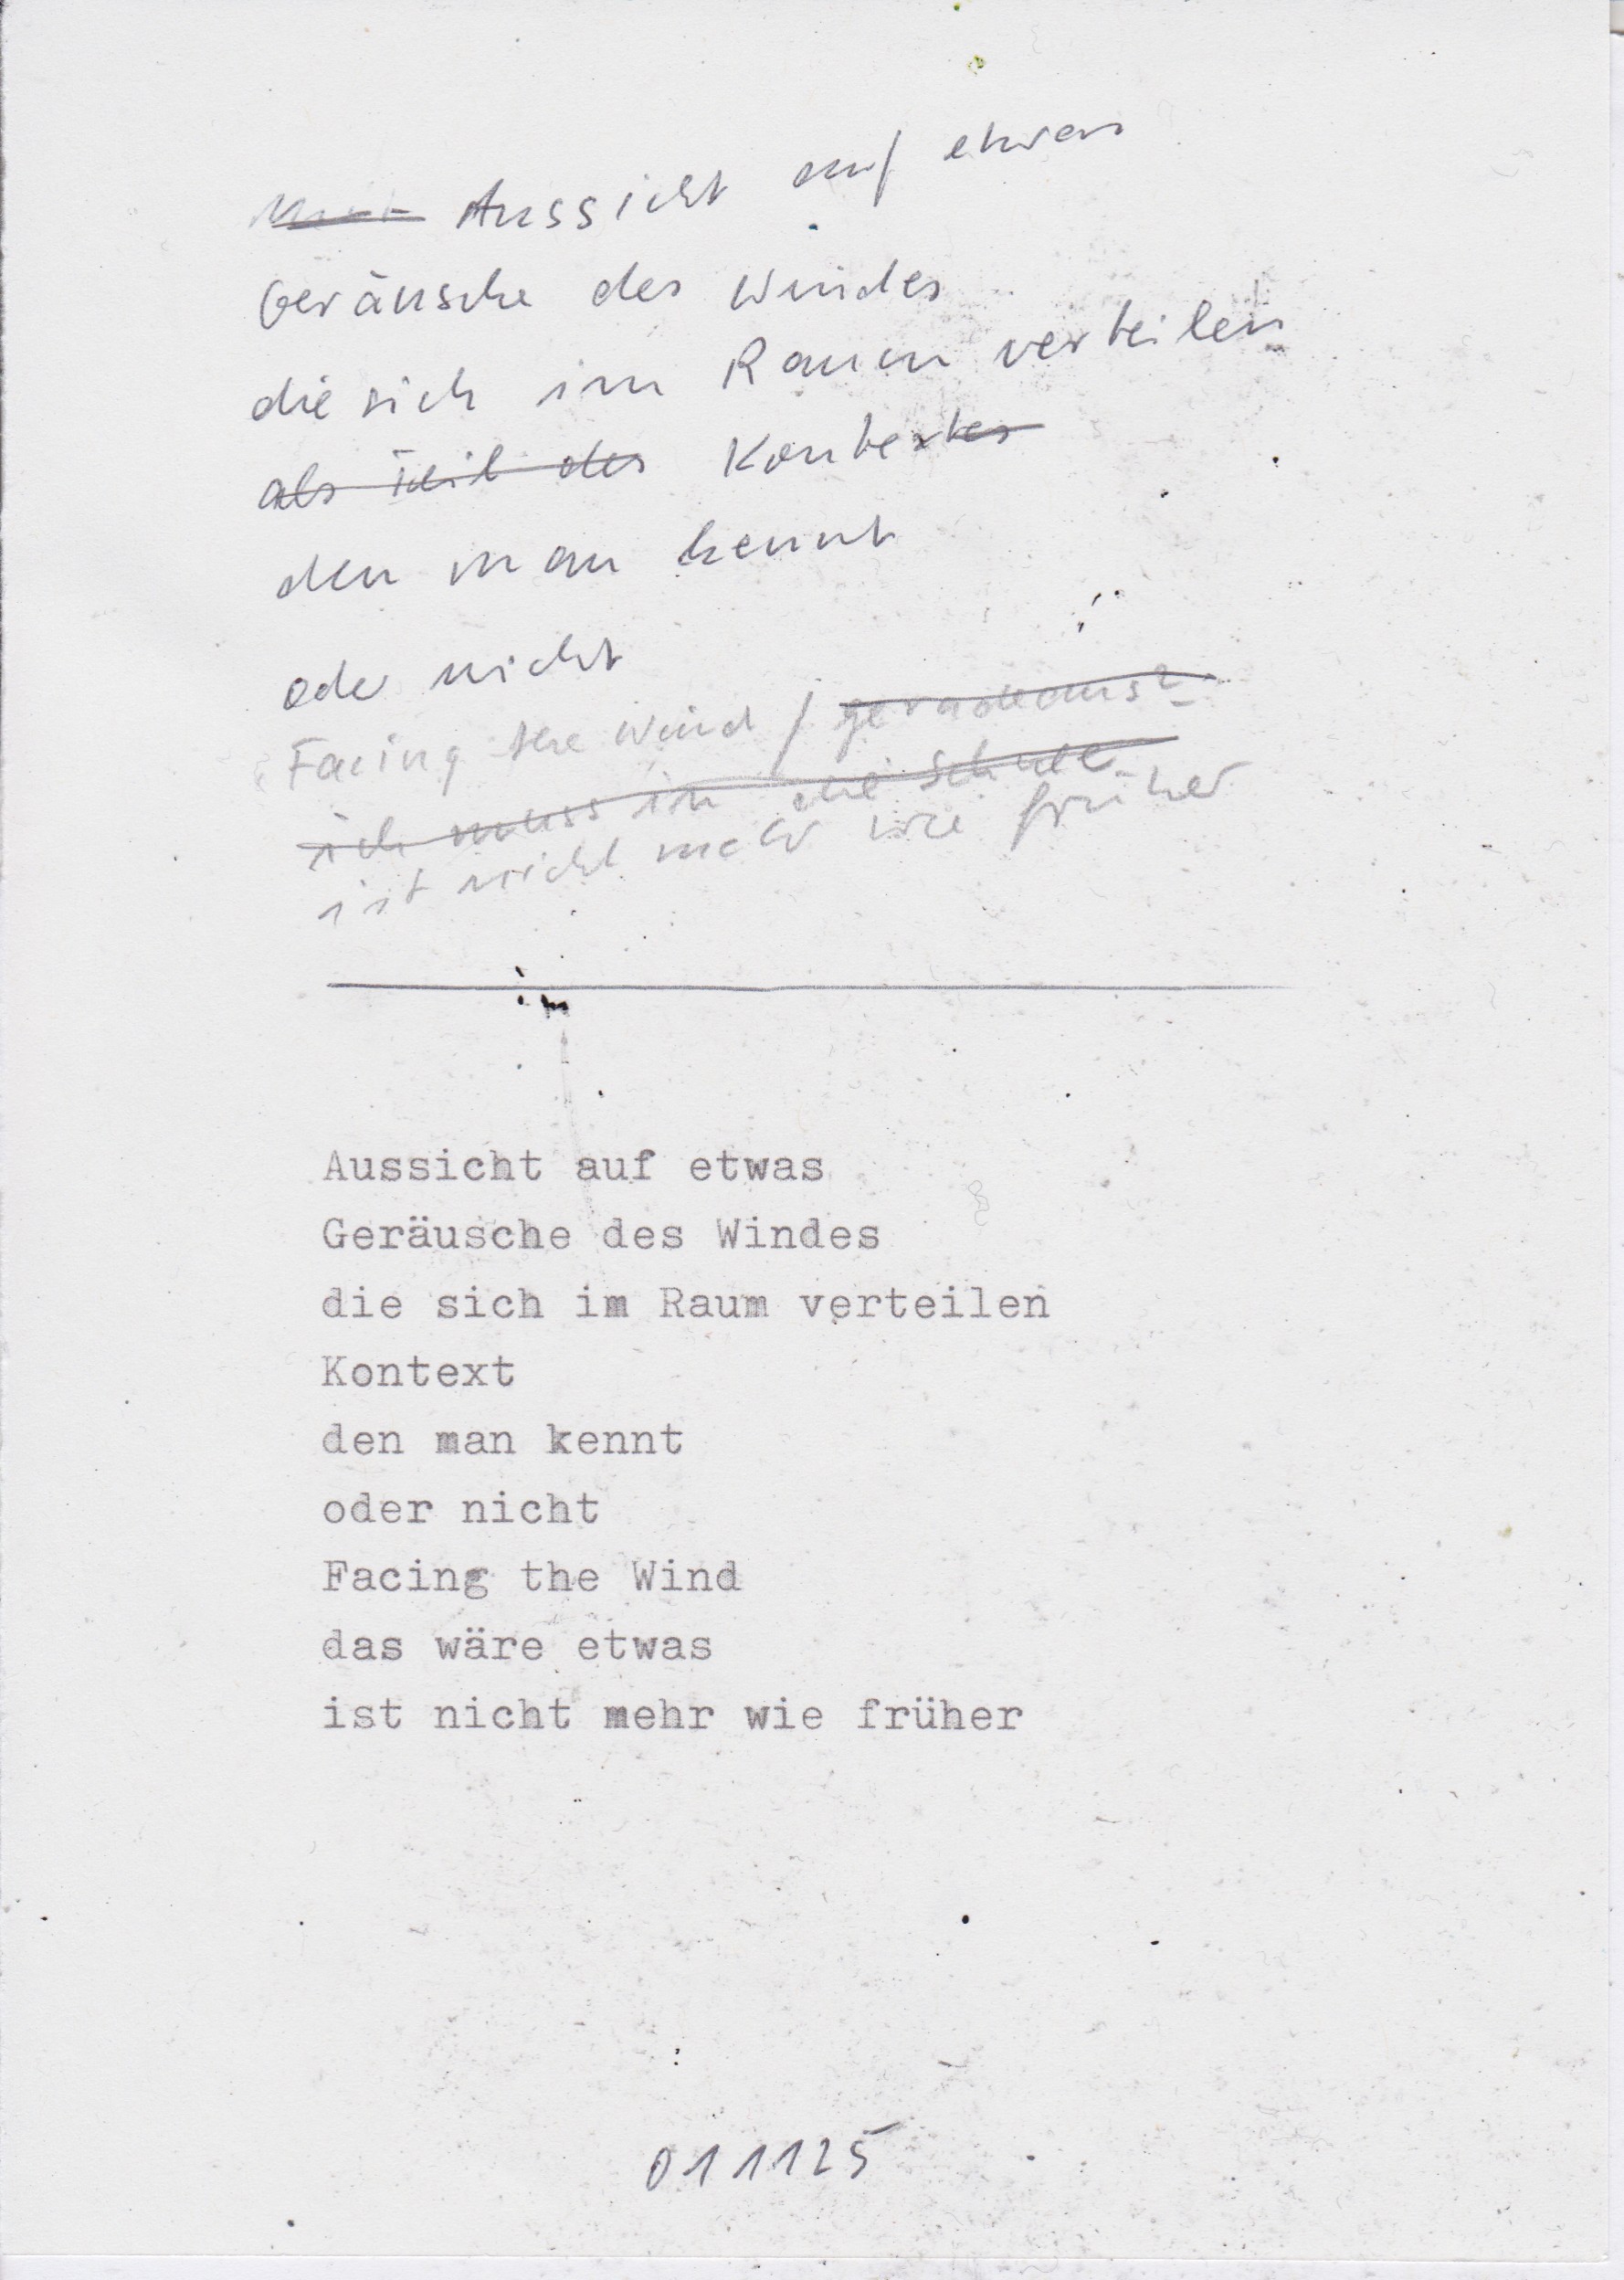 Aussicht auf etwas
Geräusche des Windes
die sich im Raum verteilen
als Teil des Kontextes
den man kennt
oder nicht
Facing the Wind / geradeaus?
ich muss in die Schule
ist nicht mehr wie früher
Aussicht auf etwas
Geräusche des Windes
die sich im Raum verteilen
Kontext
den man kennt
oder nicht
Facing the Wind
das wäre etwas
ist nicht mehr wie früher
011125